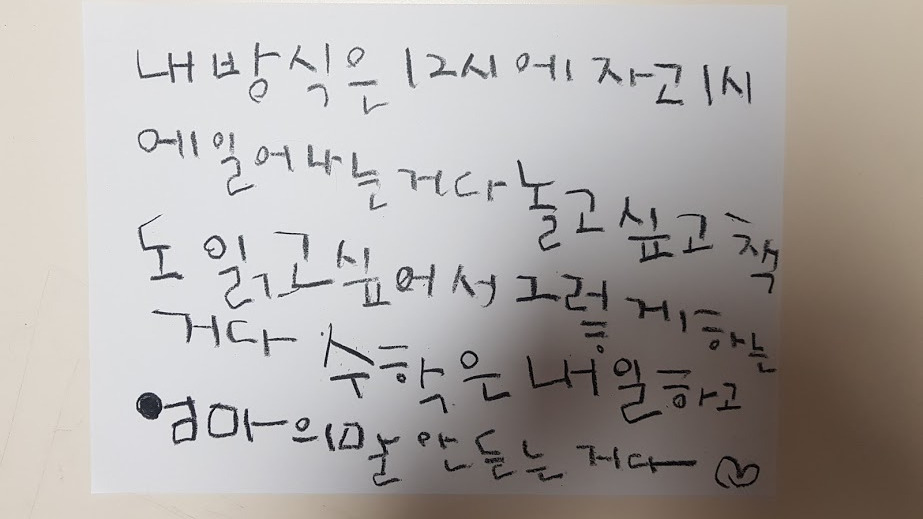 내 방식은 12시에 자고 1시
에 일어나는 거다 놀고 싶고 책
도 읽고 싶어서 그렇게 하는
거다 수학은 내일 하고
엄마의 말 안 듣는 거다